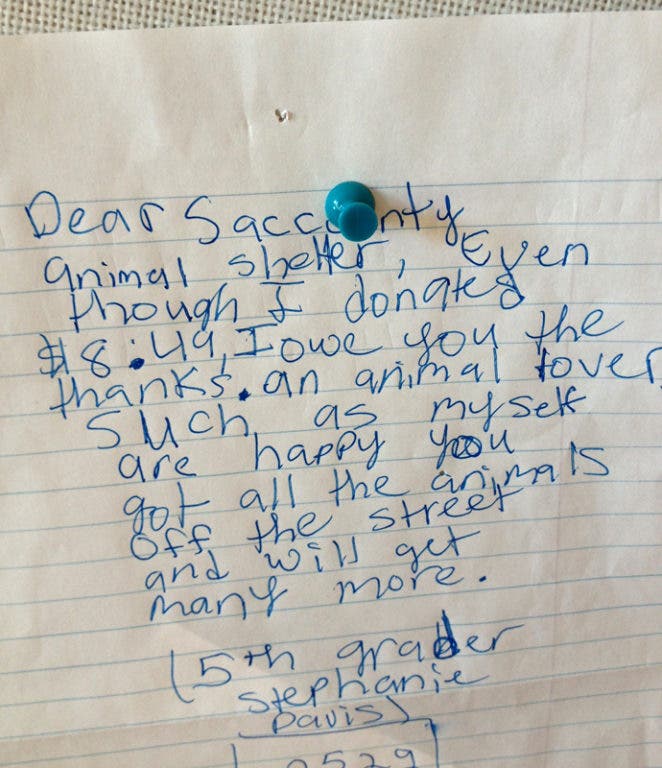 Dear Sacc nty
animal shelter, Even
though I donated
$8.49, I owe you the
thanks. an animal lover
Such as myself
are happy you
got all the animals
off the street
and will get
many more.
(5th grader
stephanie
Davis)
0529